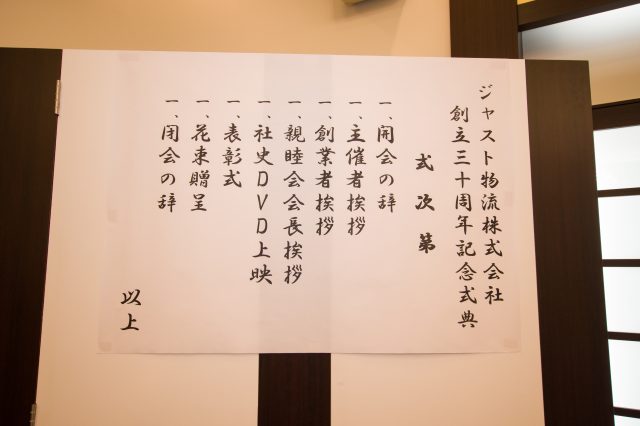 ジャスト物流株式会社
創立三十周年記念式典
式次第
一、開会の辞
一、主催者挨拶
一、創業者挨拶
一、親睦会会長挨拶
一、社史DVD上映
一、表彰式
一、花束贈呈
一、閉会の辞
以上